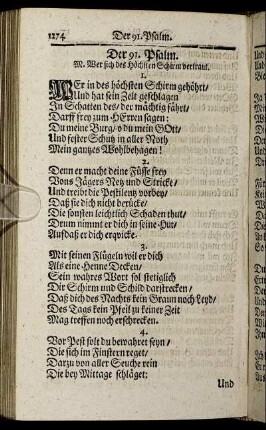 1274 Der 91. Psalm.
Der 91. Psalm.
M. Wer sich des Höchsten Schirm vertraut.
1.
WEr in des höchsten Schirm gehöhrt/
Und hat sein Zeit geschlagen
In Schatten des/ der mächtig fährt/
Darff frey zum HErren sagen:
Du meine Burg/ o du mein GOtt/
Und fester Schutz in aller Noth
Mein gantzes Wohlbehägen!
2.
Denn er macht deine Füsse frey
Vons Jägers Netz und Stricke/
Und treibt die Pestilentz vorbey/
Daß sie dich nicht berücke/
Die sonsten leichtlich Schaden thut/
Drum nimmt er dich in seine Hut/
Aufdaß er dich erqvicke.
3.
Mit seinen Flügeln wil er dich
Als eine Henne Decken/
Sein wahres Wort sol stetiglich
Dir Schirm und Schild darstrecken/
Daß dich des Nachts kein Graun noch Leyd/
Des Tags kein Pfeil zu keiner Zeit
Mag treffen noch erschrecken.
4.
Vor Pest solt du bewahret seyn/
Die sich im Finstern reget/
Darzu von aller Seuche rein
Die bey Mittage schläget:
Und